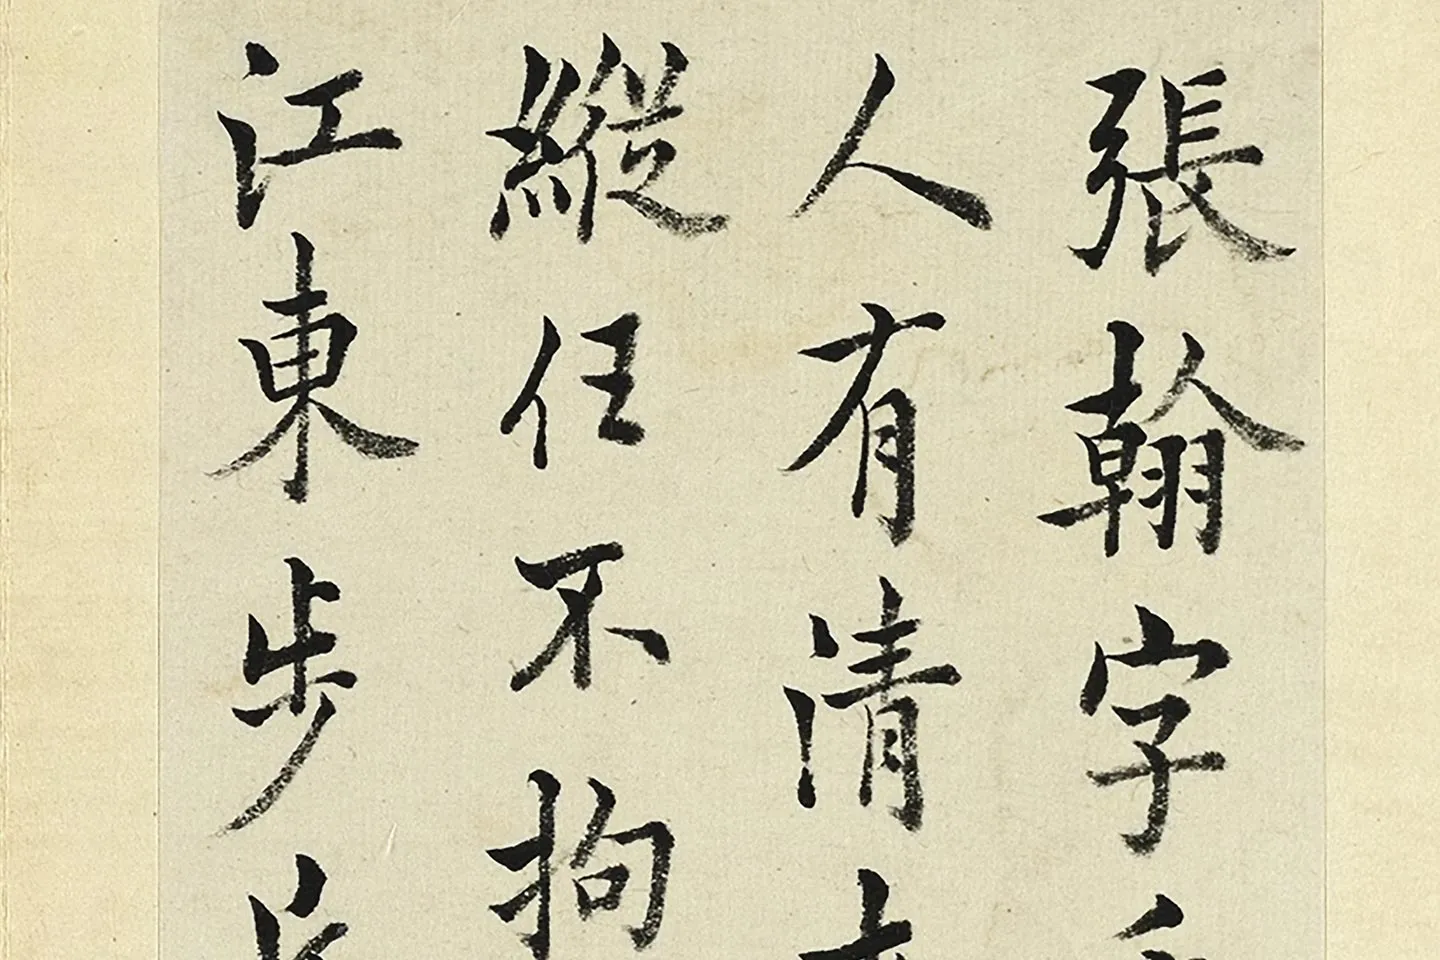 張翰字
人有清
縱任不拘
江東步